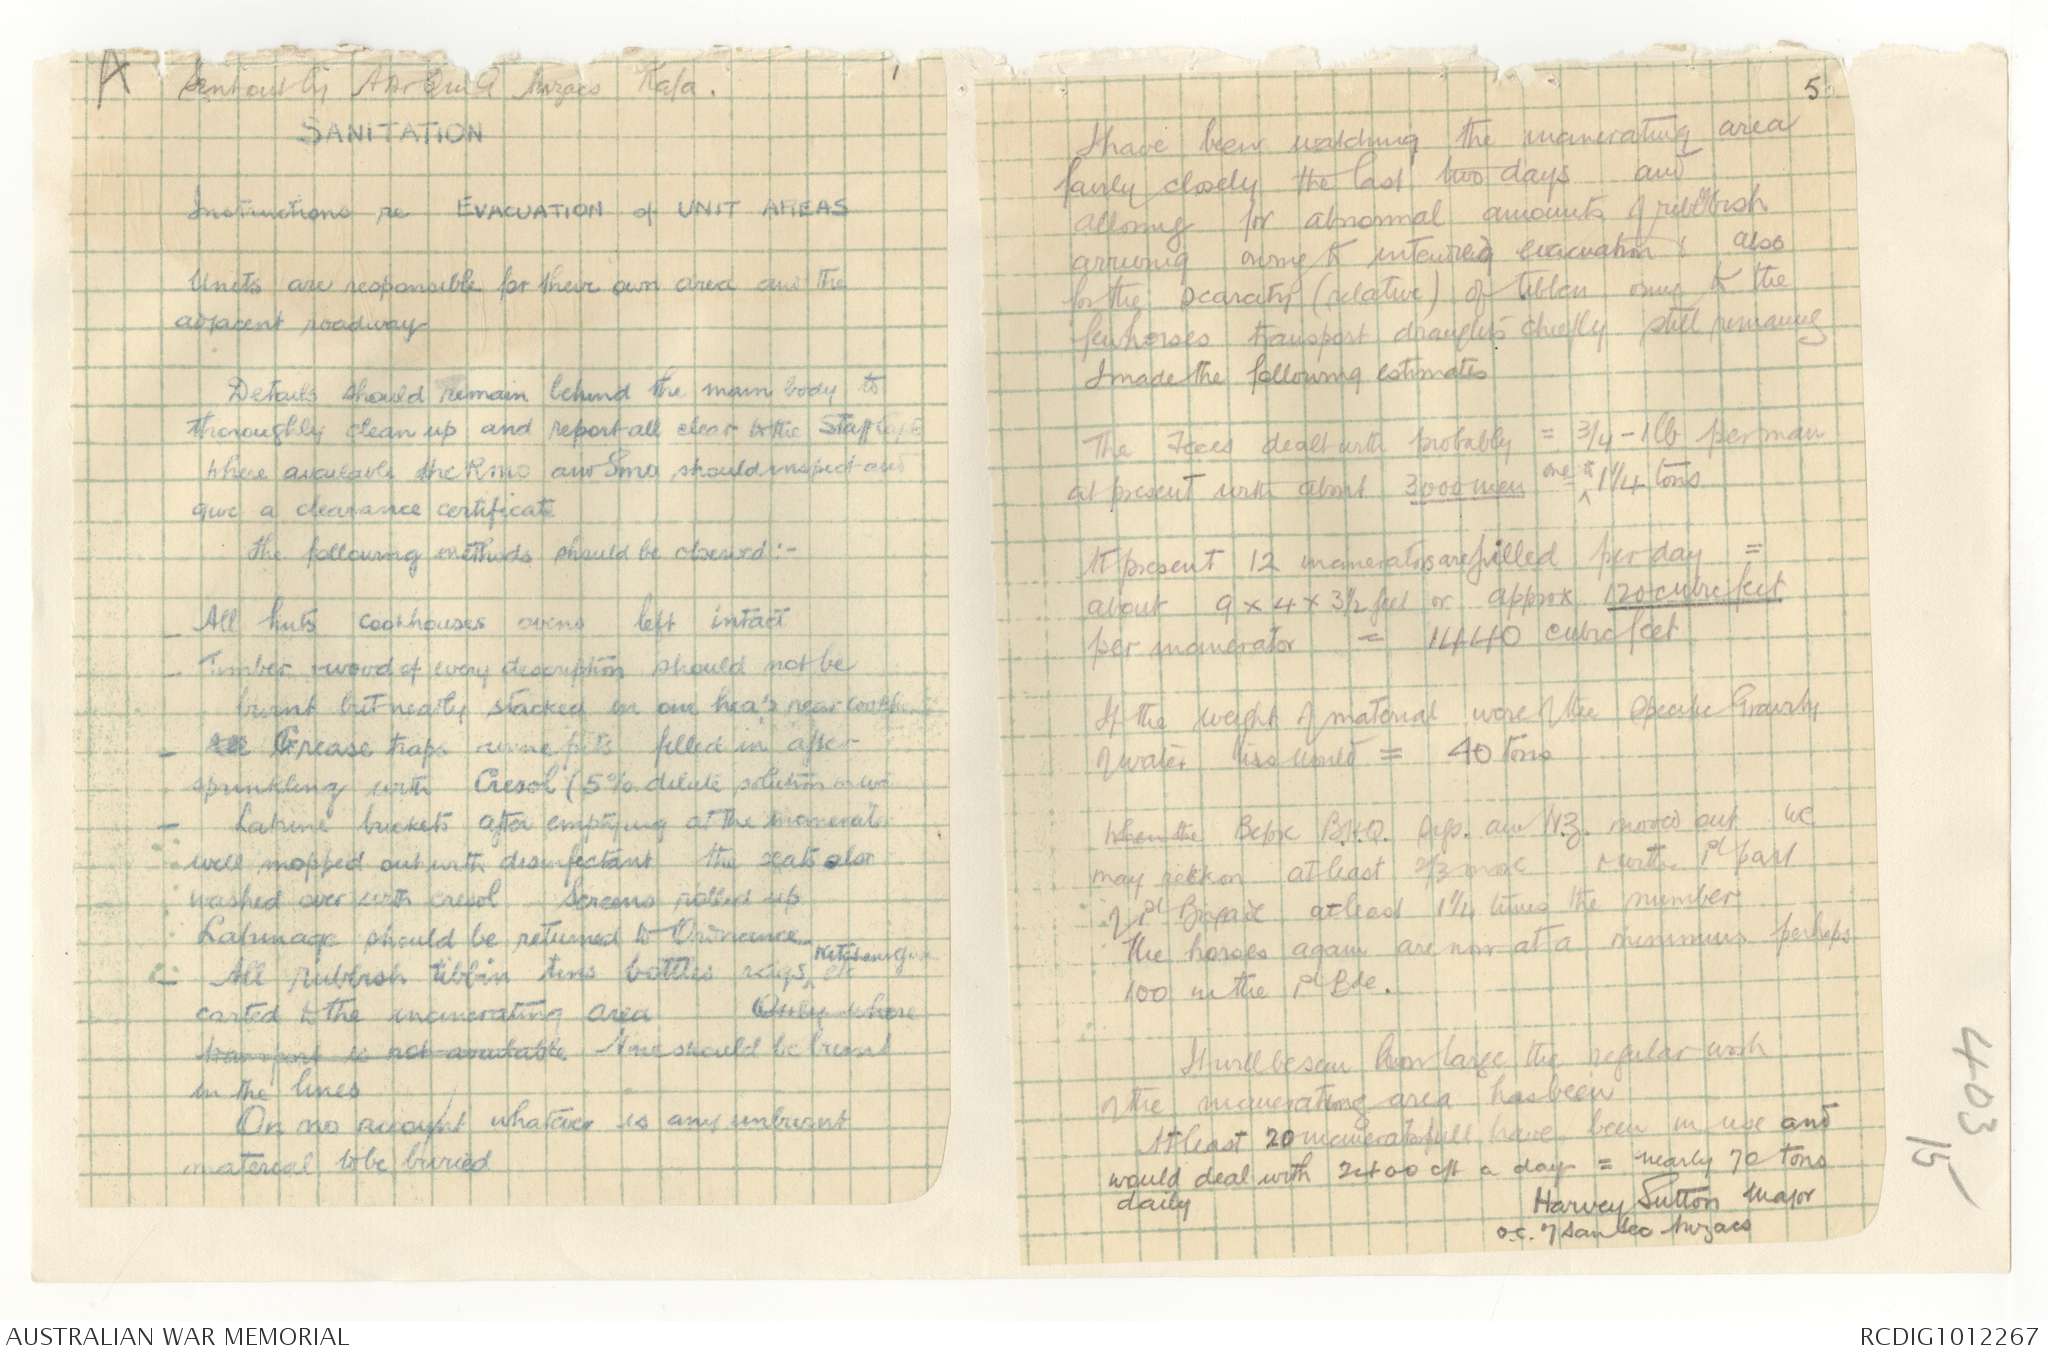 A
1
Sent out by A & Q M G Anzacs Kafa.
SANITATION
Instructions re EVACUATION of UNIT AREAS
Units are responsible for their own area and the
adjacent roadway
Details should remain behind the main body to
thoroughly clean up and report all clear to the Staff Capt
Where available the RMO and SMO should inspect and
give a clearance certificate
The following methods should be observed :-
- All huts cookhouses ovens left intact
- Timber & wood of every description should not be
burnt but neatly stacked in one heap near cookh
- All Grease traps urine pits filled in after
sprinkling with Cresol (5% dilute solution in wa
- Latrine buckets after emptying at the incinerat
well mopped out with disinfectant the seats also
washed over with cresol Screens rolled up
Latrinage should be returned to Ordnance
- All rubbish tibbin tins bottles rags etc
carted to the incinerating area Only where
transport is not available None should be burnt
in the lines
On no account whatever is any unburnt
material to be buried
5
I have been watching the incinerating area
fairly closely the last two days and
allowing for abnormal amounts of rubbish
arriving owing to intended evacuation & also
for the scarcity (relative) of tibben owing to the
few horses transport draughts chiefly still remaining
I made the following estimates
The Feces dealt with probably = 3/4 - 1 lb per man
at present with about 3000 men = one to 1 1/4 tons
At present 12 incinerators are filled per day =
about 9 x 4 x 3 1/2 feet or approx 120 cubic feet
per incinerator = 1440 cubic feet
If the weight of material were of the Specific Gravity
of water this would = 40 tons
When the Before B.H.Q. Ayr. and N.Z. moved out we
may reckon at least 2/3 more & with pt part
of pt Brigade at least 1 1/4 times the number
The horses again are now at a minimum perhaps
100 in the pt Bde.
It will be seen how large the regular work
of the incinerating area has been
At least 20 incinerators full have been in use and
would deal with 2400 cft a day = nearly 70 tons
daily
Harvey Sutton Major
O.C. 7 San Sec Anzacs
403 15
AUSTRALIAN WAR MEMORIAL
RCDIG1012267